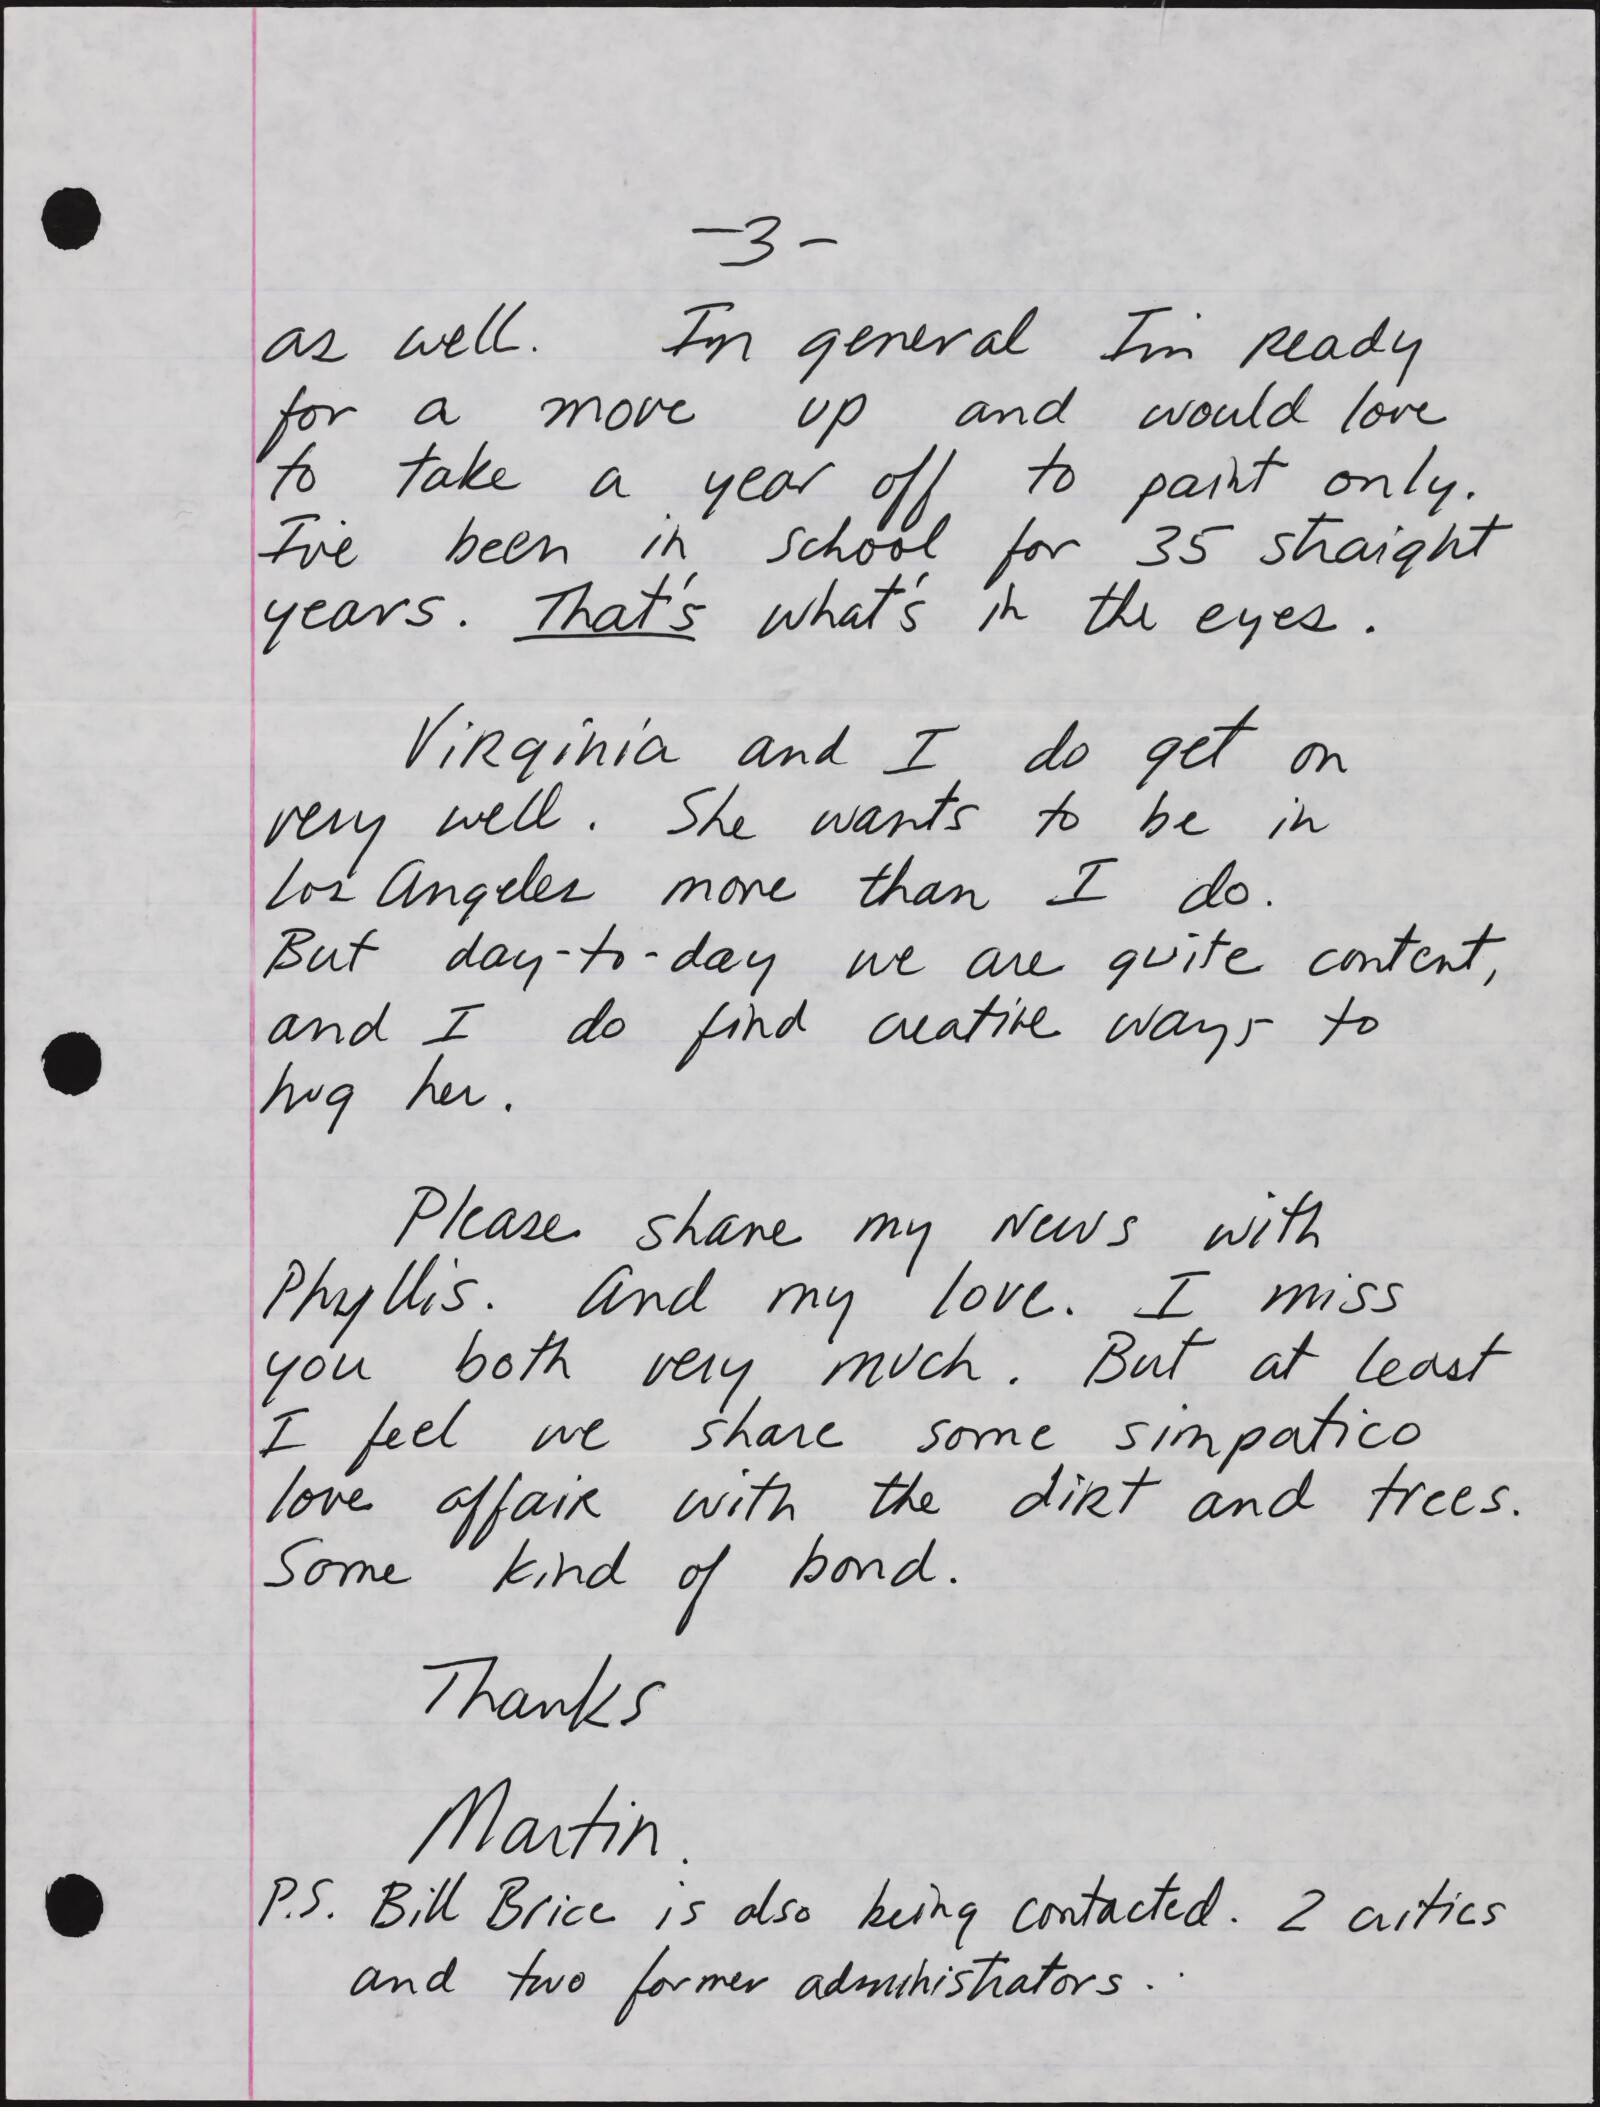 -3-
as well. In general I'm ready
for a move up and would love
to take a year off to paint only.
I've been in school for 35 straight
years. That's what's in the eyes.
Virginia and I do get on
very well. She wants to be in
Los Angeles more than I do.
But day-to-day we are quite content,
and I do find creative ways to
hug her.
Please share my news with
Phyllis. And my love. I miss
you both very much. But at least
I feel we share some simpatico
love affair with the dirt and trees.
Some kind of bond.
Thanks
Martin.
P.S. Bill Brice is also being contacted. 2 critics
and two former administrators.